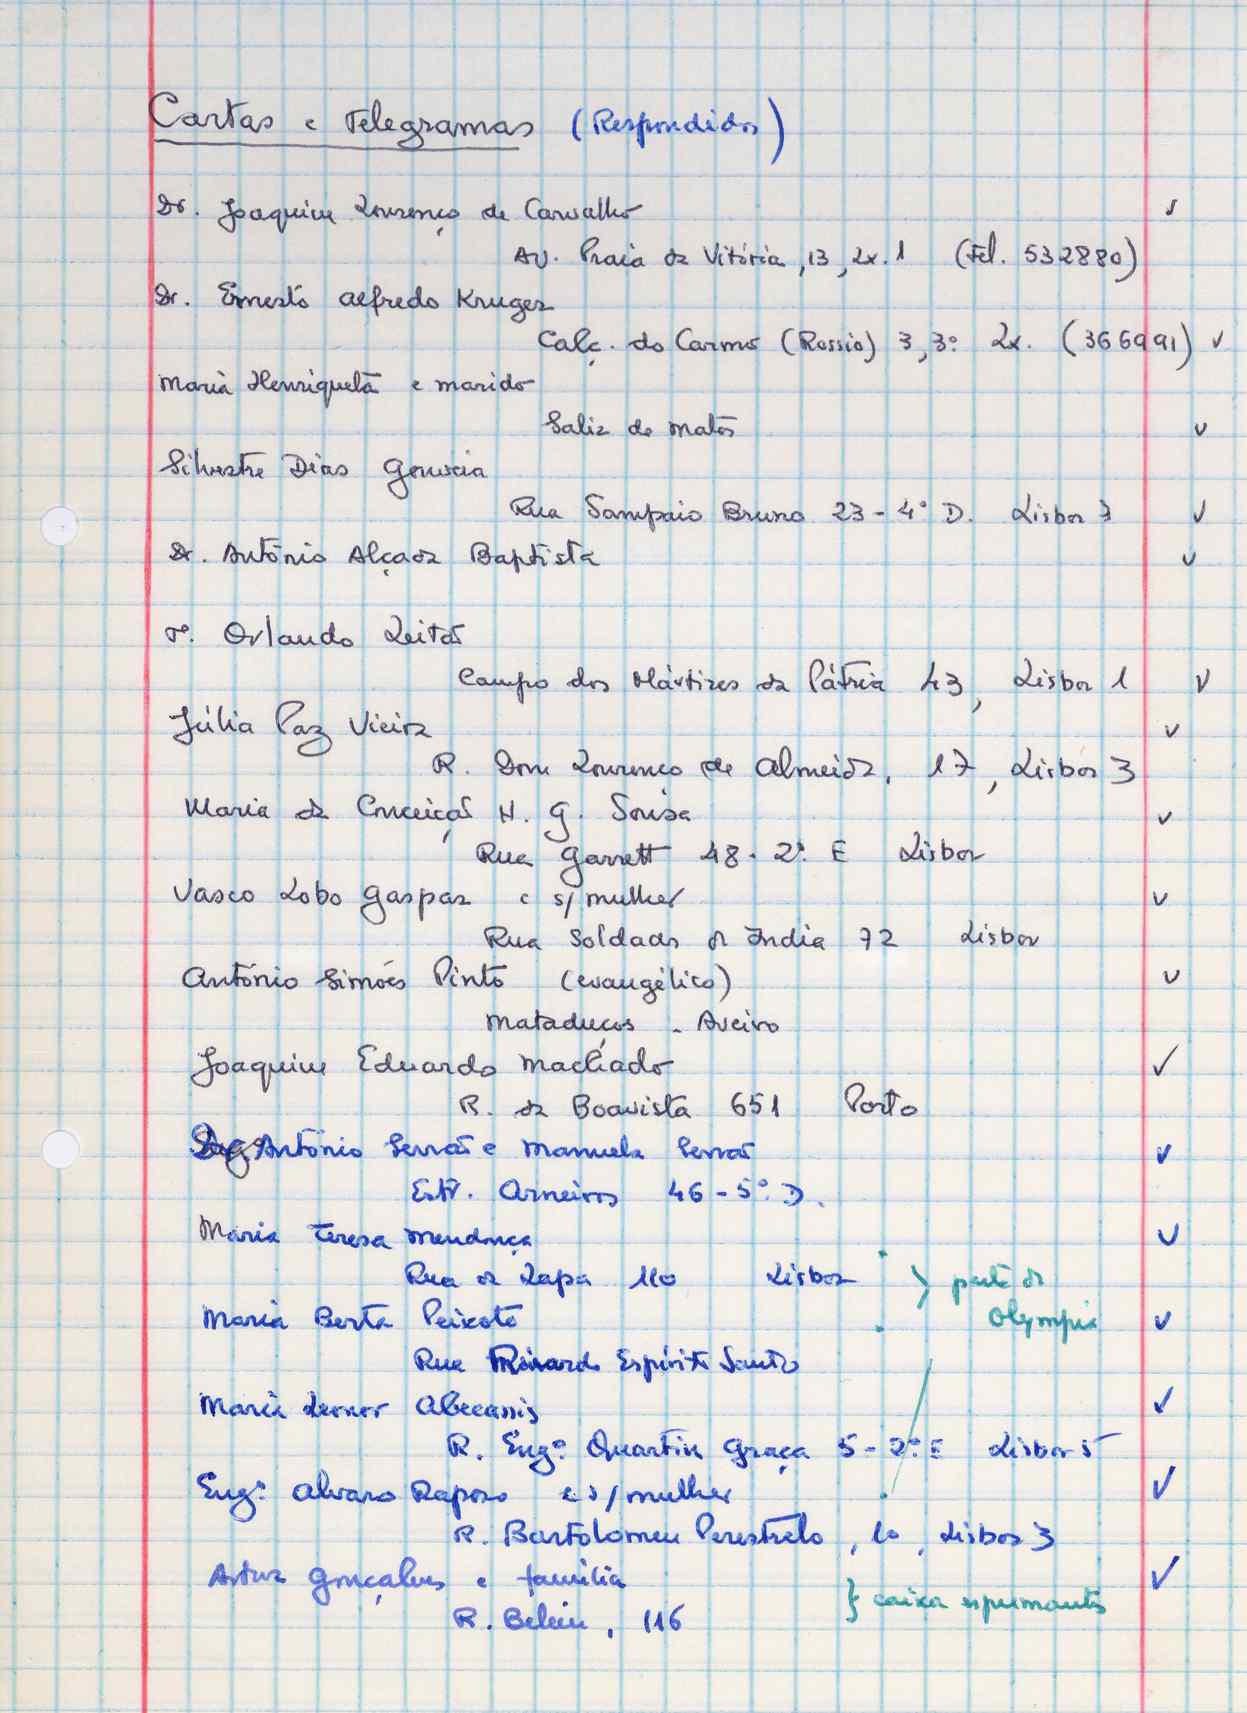 Cartas e Telegramas (Respondidos)
Dr. Joaquim Lourenço de Carvalho
Av. Praia da Vitória, 13, Lx. 1 (Tel. 532880)
Dr. Ernesto Alfredo Kruger
Calç. do Carmo (Rossio) 3, 3º Lx. (366991)
Maria Henriqueta e marido
Galiz de Matos
Silvestre Dias Gouveia
Rua Sampaio Bruno 23-4º D. Lisboa 3
Dr. António Alçada Baptista
Orlando Leitão
Campo dos Mártires da Pátria 43, Lisboa 1
Júlia Paz Vieira
R. Dom Lourenço de Almeida, 17, Lisboa 3
Maria da Conceição H. G. Sousa
Rua Garrett 48-2º E Lisboa
Vasco Lobo Gaspar e s/mulher
Rua Soldado da India 72 Lisboa
António Simões Pinto (evangélico)
Mataduços - Aveiro
Joaquim Eduardo Machado
R. da Boavista 651 Porto
António Serrão e Manuela Serrão
Estr. Arneiros 46-5º D.
Maria Teresa Mendonça
Rua da Lapa 110 Lisboa
} parte da
Olympia
Maria Berta Peixoto
Rua Ricardo Espírito Santo
Maria Leonor Abecassis
R. Engº Quartin Graça 5-2º E Lisboa 5
Engº Alvaro Raposo e s/mulher
R. Bartolomeu Perestrelo, 10, Lisboa 3
Artur Gonçalves e família
} caixa espumantes
R. Belém, 116